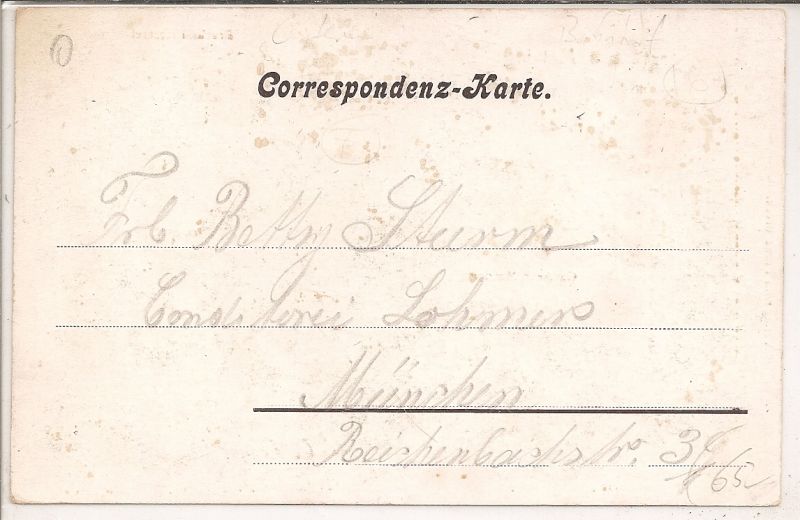 Correspondenz-Karte.
Frl. Betty Sturm
Conditorei Lohmers
München
Reichenbachstr.